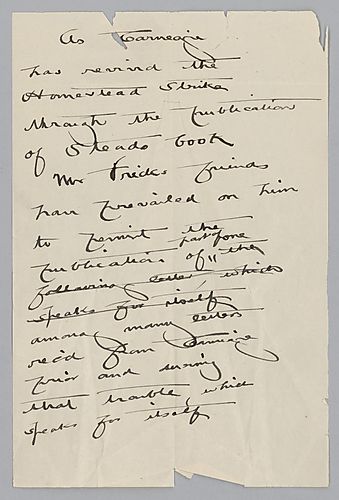 As Carnegie
has revived the
Homestead Strike
through the publication
of Steads book
Mr Fricks friends
have prevailed on him
to permit the
part of one
publication of "the
following letter, which
speaks for itself,
among many letters
rec'd from Carnegie
prior and during
that trouble, which
speaks for itself